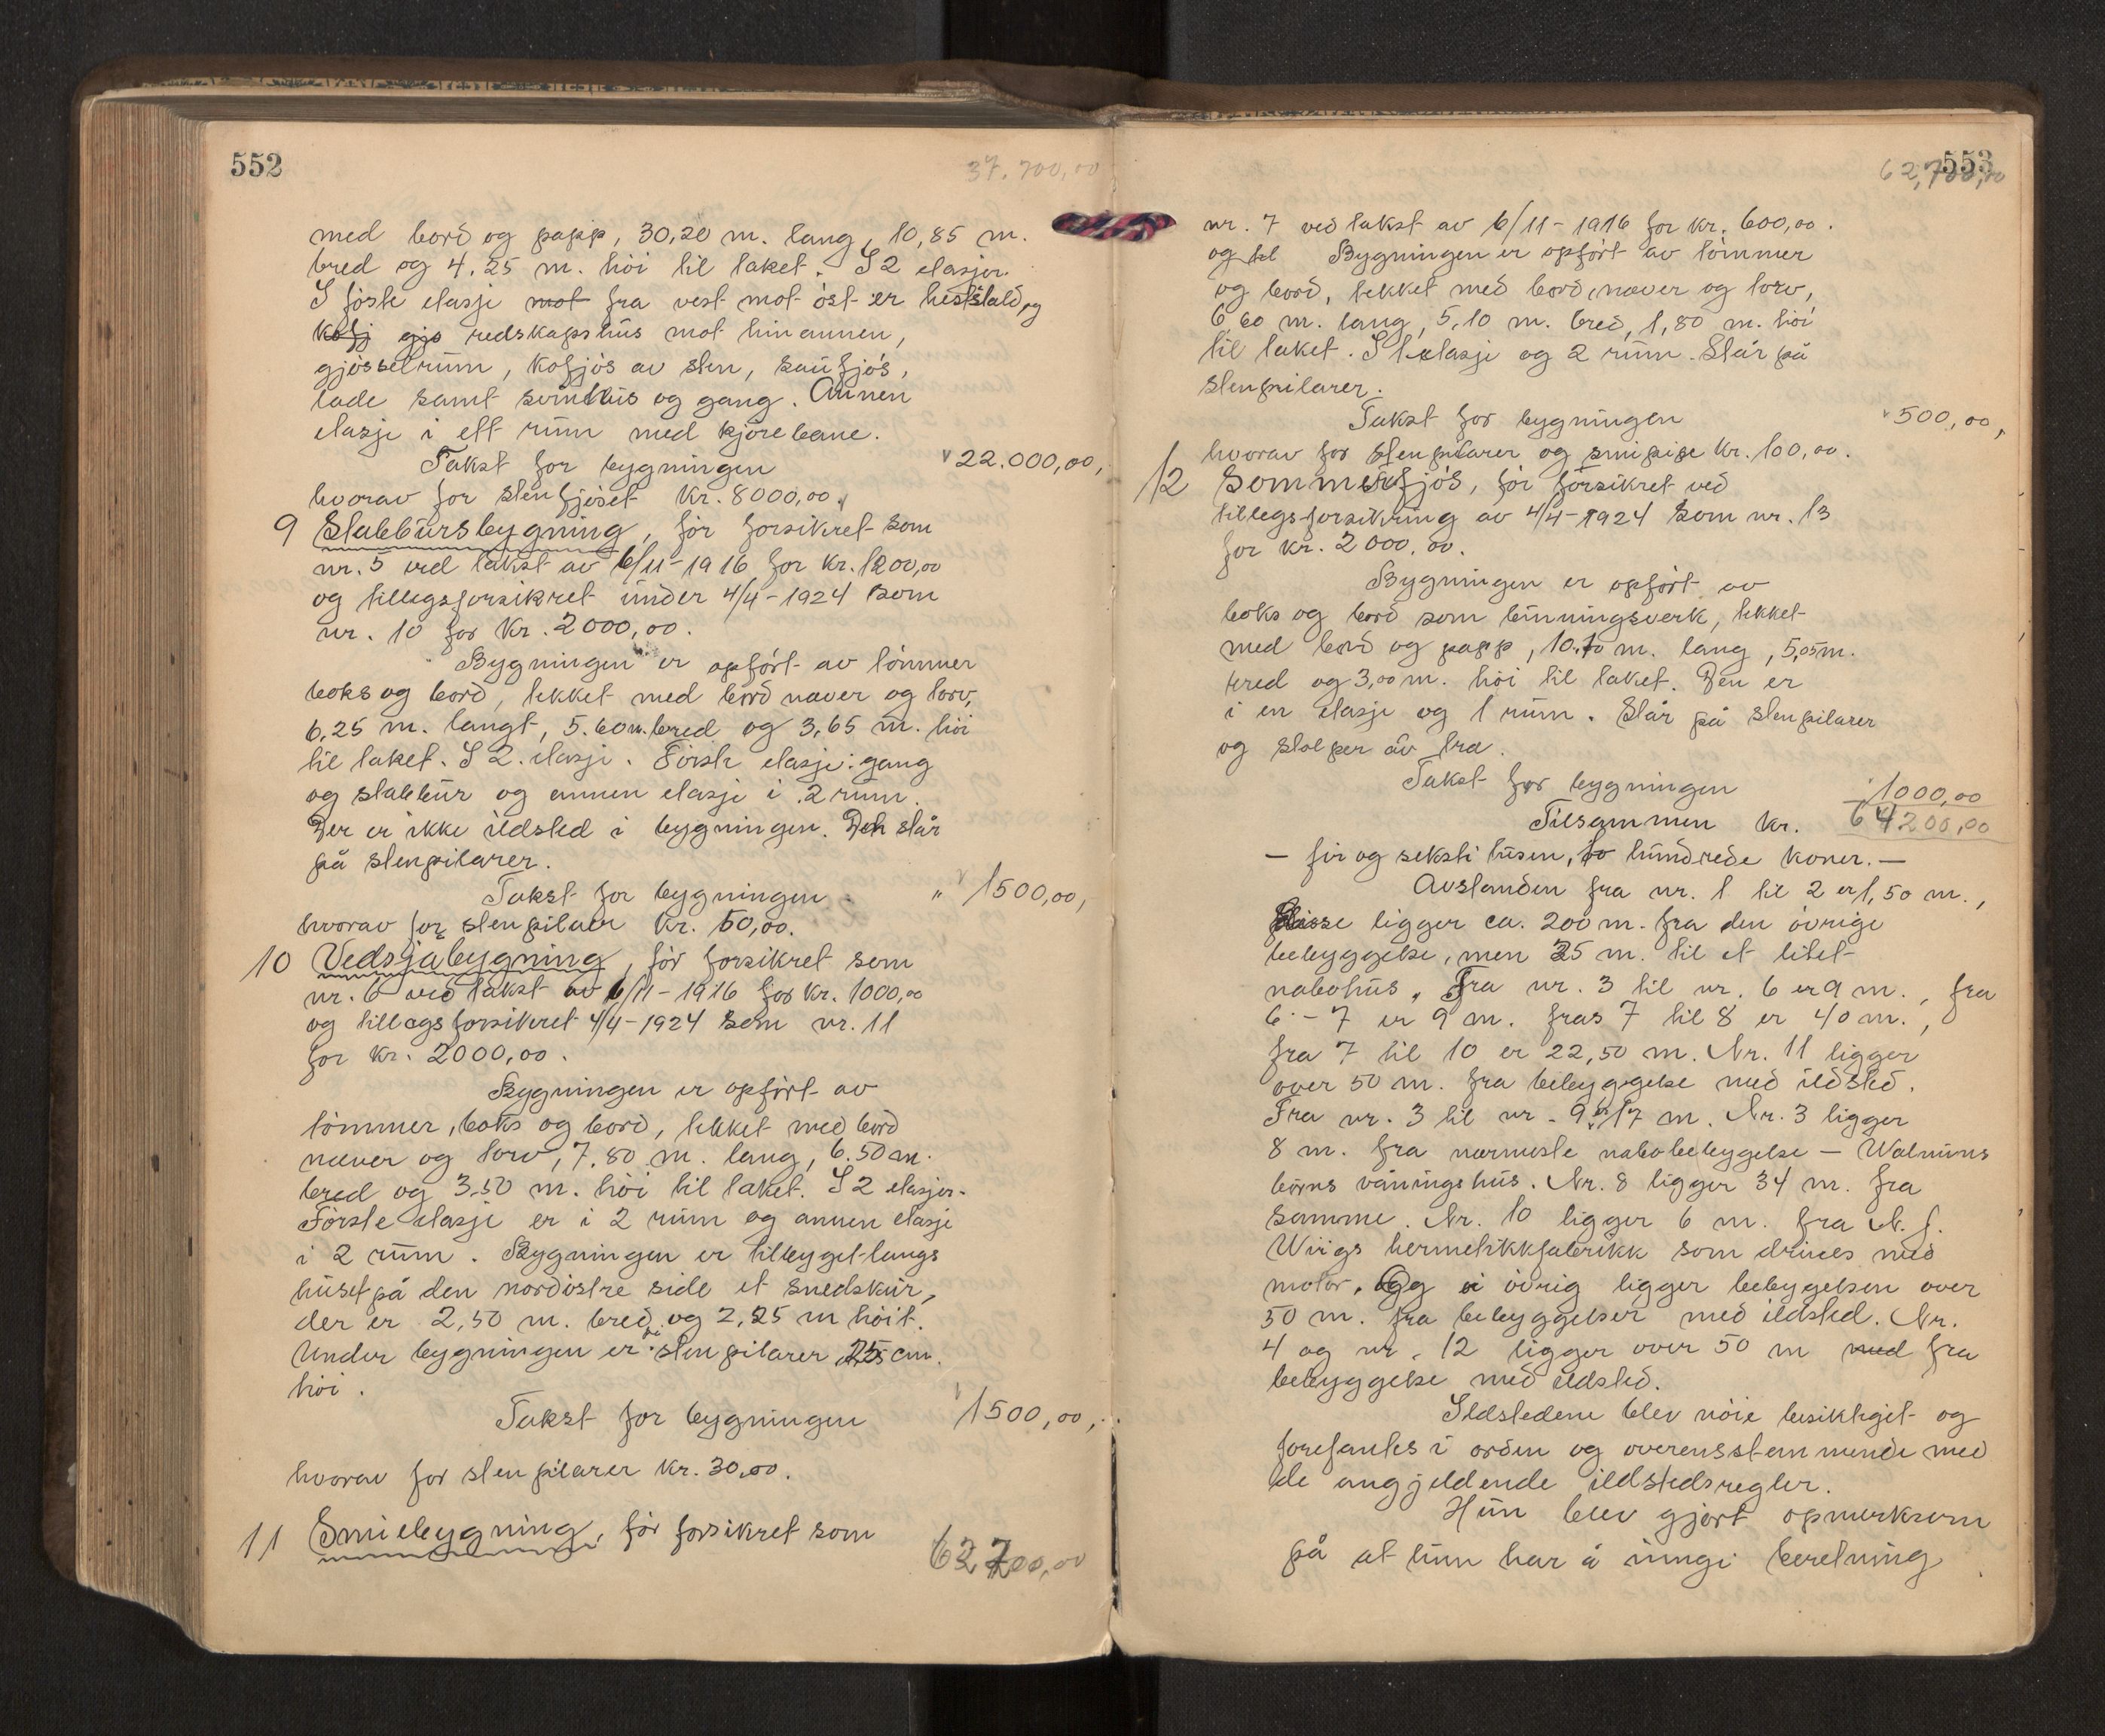 552
37.700,00
med bord og papp, 30,20 m. lang, 10,85 m.
bred og 4.25 m. höi til taket. I 2 etasjer.
I föste etasje mot fra vest mot öst er heststald, og
kofj gjö redskapshus mot hinannen,
gjösselrum, kofjös av sten, saufjös,
lade samt svinhus og gang. Annen
etasje i ett rum med kjörebane.
Takst for bygningen 22.000,00,
hvorav for stenfjöset Kr. 8000,00.
9 Stabbursbygning, för forsikret som
nr. 5 ved takst av 6/11-1916 for kr. 1200,00
og tillegsforsikret under 4/4-1924 som
nr. 10 for Kr. 2000,00.
Bygningen er opfört av tömmer
boks og bord, tekket med bord never og torv,
6,25 m. langt, 5.60 m. bred og 3,65 m. höi
til taket. I 2. etasje. Förste etasje: gang
og stabbur og annen etasje i 2 rum.
Der er ikke ildsted i bygningen. Den står
på stenpilarer.
Takst for bygningen " 1500,00,
hvorav for stenpilarer Kr. 50,00.
10 Vedsjåbygning, för forsikret som
nr. 6 ved takst av 6/11-1916 for Kr. 1000,00
og tillegsforsikret 4/4-1924 som nr. 11
for Kr. 2000,00.
Bygningen er opfört av
tömmer, boks og bord, tekket med bord
never og torv, 7,80 m. lang, 6.50 m.
bred og 3.50 m. höi til taket. I 2 etasjer.
Förste etasje er i 2 rum og annen etasje
i 2 rum. Bygningen er tilbygget langs
huset på den nordöstre side et snedskur,
der er 2,50 m. bred og 2,25 m höit.
Under bygningen er stenpilarer 25 cm.
höi.
Takst for bygningen 1500,00,
hvorav for stenpilarer Kr. 30,00.
11 Smiebygning, för forsikret som
62 700,00
553
62,700,00
nr. 7 ved takst av 6/11-1916 for Kr. 600,00.
og til Bygningen er opfört av tömmer
og bord, tekket med bord, never og torv,
6,60 m. lang, 5,10 m. bred, 1,80 m. höi
til taket. I 1 etasje og 2 rum. Står på
stenpilarer.
Takst for bygningen 500,00,
hvorav for stenpilarer og smipipe Kr. 100,00.
12 Sommerfjös, för forsikret ved
tillegsforsikring av 4/4-1924 som nr. 13
for Kr. 2000,00.
Bygningen er opfört av
boks og bord som binningsverk, tekket
med bord og papp, 10,10 m. lang, 5,05 m.
bred og 3,00 m. höi til taket. Den er
i en etasje og 1 rum. Står på stenpilarer
og stolper av tra.
Takst for bygningen 1000,00
Tilsammen Kr. 64200,00
- fir og seksti tusen, to hundrede kroner. -
Avstanden fra nr. 1 til 2 er 1,50 m.,
disse ligger ca. 200 m. fra den övrige
bebyggelse, men 35 m. til et litet
nabohus. Fra nr. 3 til nr. 6 er 9 m., fra
6 - 7 er 9 m. fra 7 til 8 er 40 m.,
fra 7 til 10 er 22,50 m. Nr. 11 ligger
over 50 m. fra bebyggelse med ildsted.
Fra nr. 3 til nr. 9 er 17 m. Nr. 3 ligger
8 m. fra nermeste nabobebygelse - Walnums
börns våningshus. Nr. 8 ligger 34 m. fra
samme. Nr. 10 ligger 6 m. fra N. J.
Wiigs hermetikkfabrikk som drives med
motor. Og i övrig ligger bebygelsen over
50 m. fra bebyggelser med ildsted. Nr.
4 og nr. 12 ligger over 50 m med fra
bebyggelse med ildsted.
Ildstedene blev nöie besiktiget og
forefantes i orden og overensstemmende med
de angjeldende ildstedsregler.
Hun blev gjort opmerksom
på at hun har å inngi beretning